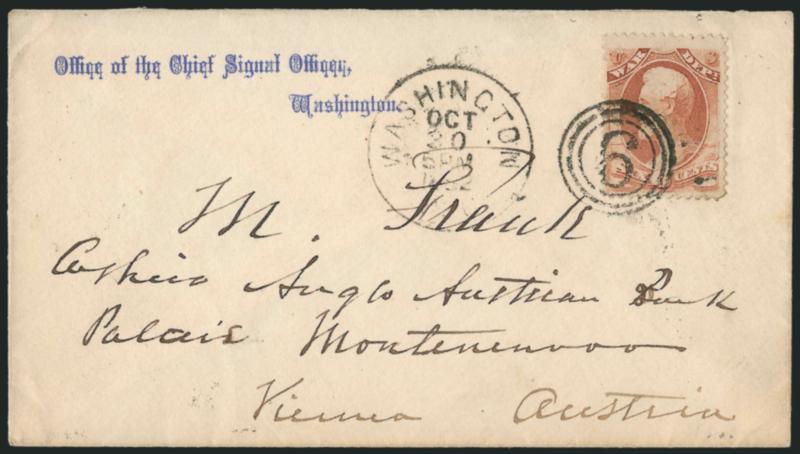 Office of the Chief Signal Officer,
Washington.
WASHINGTON
OCT
WAR DEPT
6
CENTS
M. Frank
Cashier Anglo Austrian Bank
Palais Montenenvoo
Vienna Austria